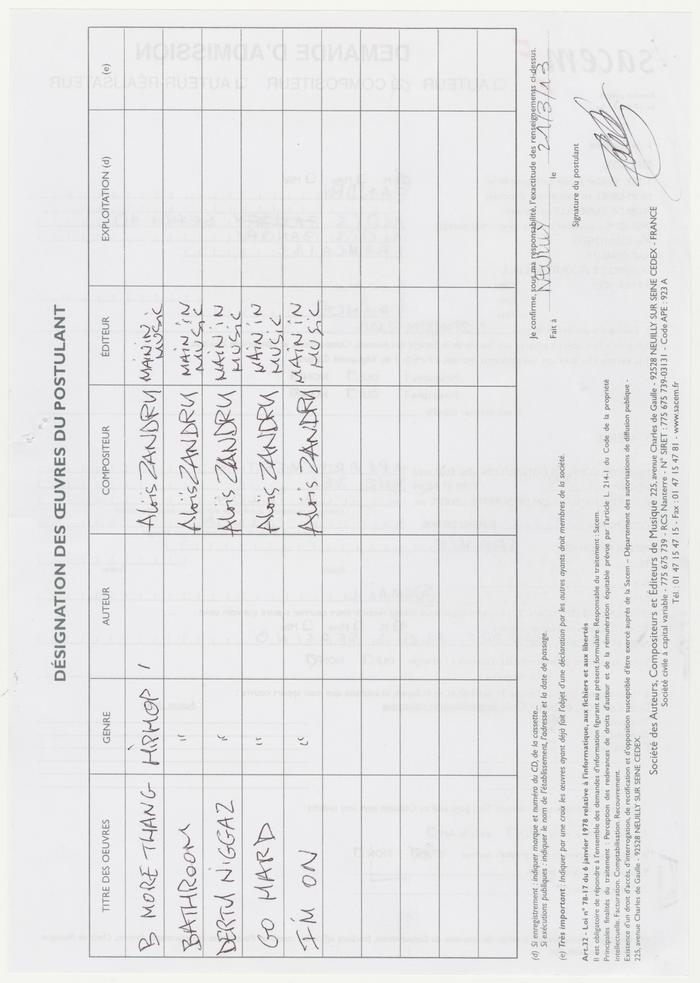 DÉSIGNATION DES ŒUVRES DU POSTULANT
TITRE DES OEUVRES GENRE AUTEUR COMPOSITEUR ÉDITEUR EXPLOITATION (d) (e)
B MORE THANG HIPHOP / Aloïs ZANDRY MAIN IN MUSIC
BATHROOM " Aloïs ZANDRY MAIN IN MUSIC
DERTY NIGGAZ " Aloïs ZANDRY MAIN IN MUSIC
GO HARD " Aloïs ZANDRY MAIN IN MUSIC
I'M ON " Aloïs ZANDRY MAIN IN MUSIC
(d) Si enregistrement : indiquer marque et numéro du CD, de la cassette...
Si exécutions publiques : indiquer le nom de l'établissement, l'adresse et la date de passage.
(e) Très important : Indiquer par une croix les œuvres ayant déjà fait l'objet d'une déclaration par les autres ayants droit membres de la société.
Je confirme, sous ma responsabilité, l'exactitude des renseignements ci-dessus.
Fait à NEUILLY le 21/3/13
Signature du postulant
Art.32 - Loi n° 78-17 du 6 janvier 1978 relative à l'informatique, aux fichiers et aux libertés
Il est obligatoire de répondre à l'ensemble des demandes d'information figurant au présent formulaire. Responsable du traitement : Sacem.
Principales finalités du traitement : Perception des redevances de droits d'auteur et de la rémunération équitable prévue par l'article L. 214-1 du Code de la propriété
intellectuelle. Facturation. Comptabilisation. Recouvrement.
Existence d'un droit d'accès, d'interrogation, de rectification et d'opposition susceptible d'être exercé auprès de la Sacem – Département des autorisations de diffusion publique -
225, avenue Charles de Gaulle - 92528 NEUILLY SUR SEINE CEDEX.
Société des Auteurs, Compositeurs et Éditeurs de Musique 225, avenue Charles de Gaulle - 92528 NEUILLY SUR SEINE CEDEX - FRANCE
Société civile à capital variable - 775 675 739 - RCS Nanterre - N° SIRET : 775 675 739-03131 - Code APE : 923 A
Tél : 01 47 15 47 15 - Fax : 01 47 15 47 81 - www.sacem.fr